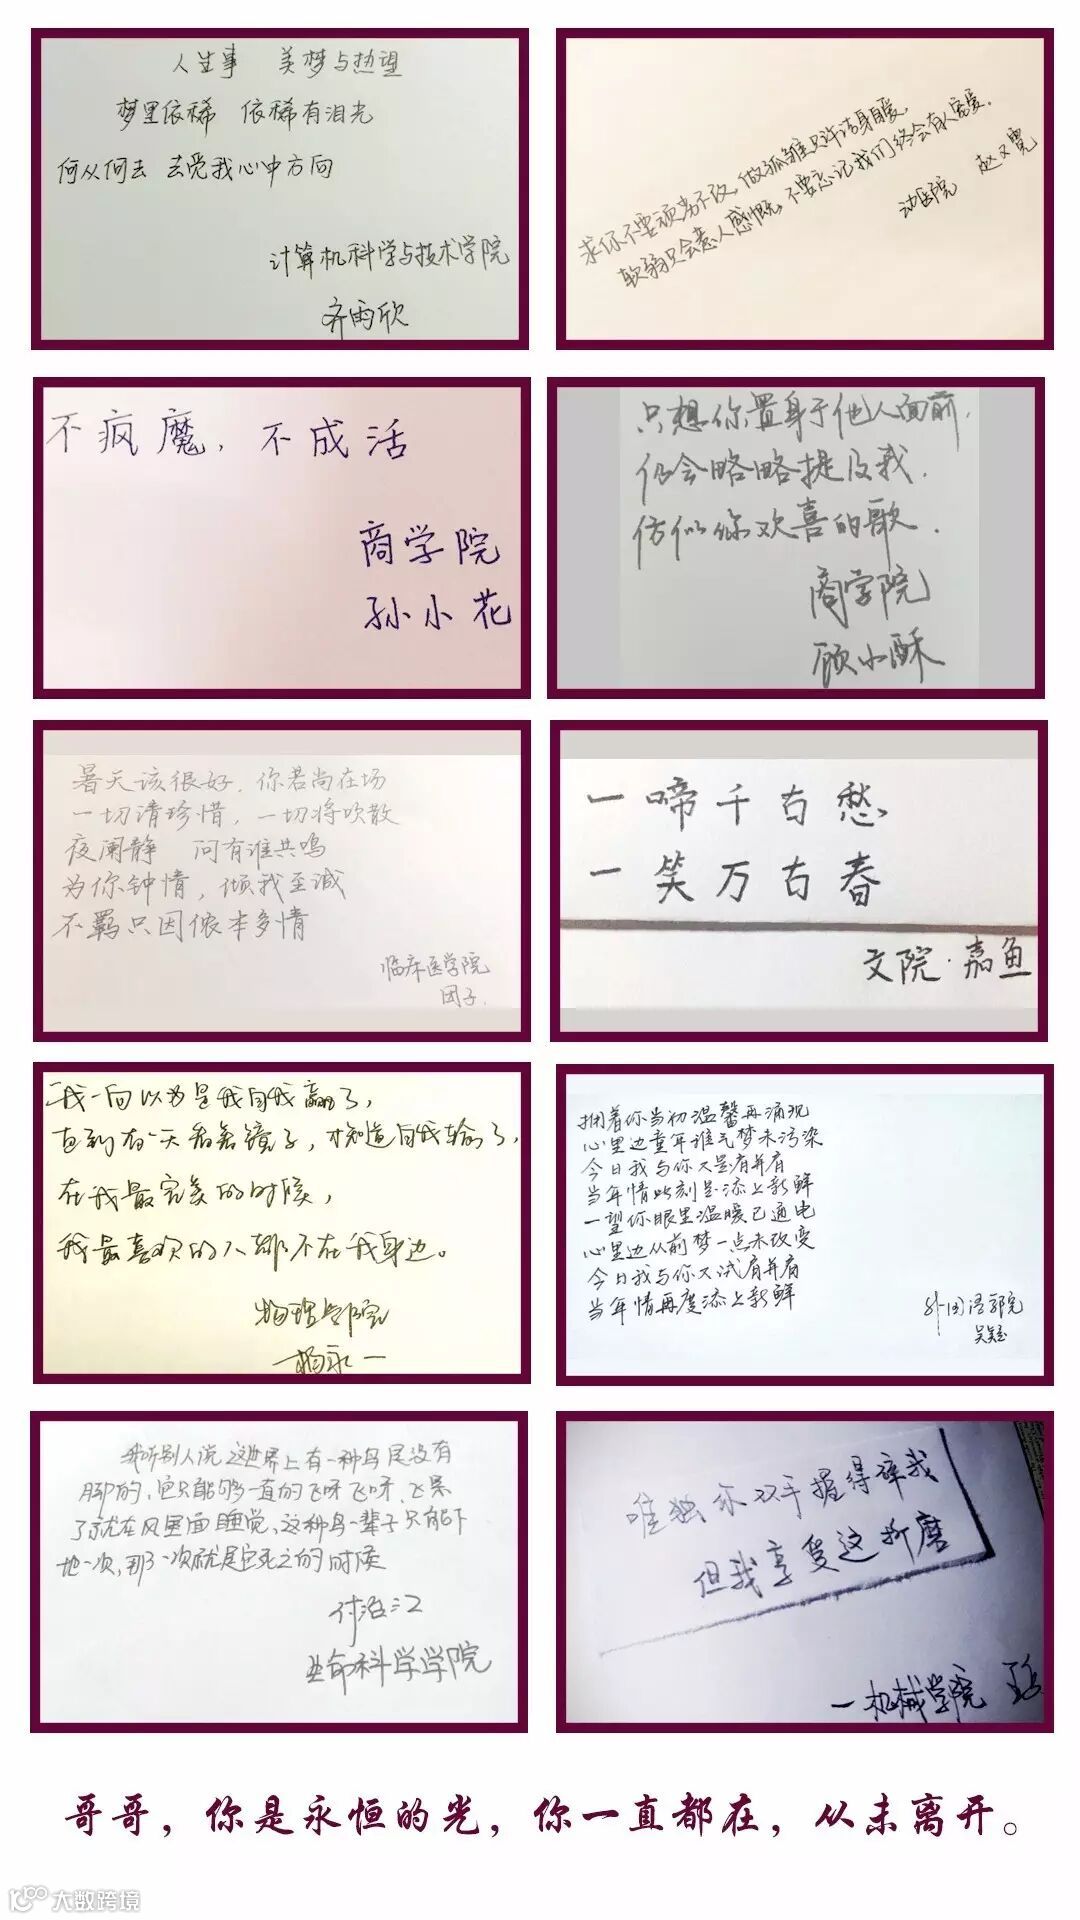 人生事 美梦与热望
梦里依稀 依稀有泪光
何从何去 去觅我心中方向
计算机科学与技术学院
齐雨欣
求你不要顽劣不改,做孤雏只许洁身自爱,
软弱只会惹人感慨,不要忘记我们终会有人宠爱.
动医院 赵又霓
不疯魔,不成活
商学院
孙小花
只想你置身于他人面前,
仍会略略提及我.
仿似你欢喜的歌.
商学院
顾小酥
暑天该很好,你若尚在场
一切请珍惜,一切将吹散
夜阑静 问有谁共鸣
为你钟情,倾我至诚
不羁只因侬本多情
临床医学院
团子.
一啼千古愁
一笑万古春
文院·嘉鱼
我一向以为是我自我赢了,
直到有一天看着镜子,才知道自我输了,
在我最完美的时候,
我最喜欢的人都不在我身边。
物理学院
杨永一
拥着你当初温馨再涌现
心里边童年稚气梦未污染
今日我与你又是肩并肩
当年情此刻是添上新鲜
一望你眼里温暖已通电
心里边从前梦一点未改变
今日我与你又试肩并肩
当年情再度添上新鲜
外国语学院
我听别人说这世界上有一种鸟是没有
脚的,它只能够一直的飞呀飞呀,飞累
了就在风里面睡觉,这种鸟一辈子只能下
地一次,那一次就是它死亡的时候
付泓江
生命科学学院
唯独你双手握得碎我
但我享受这折磨
一机械学院
哥哥,你是永恒的光,你一直都在,从未离开。
大数跨境